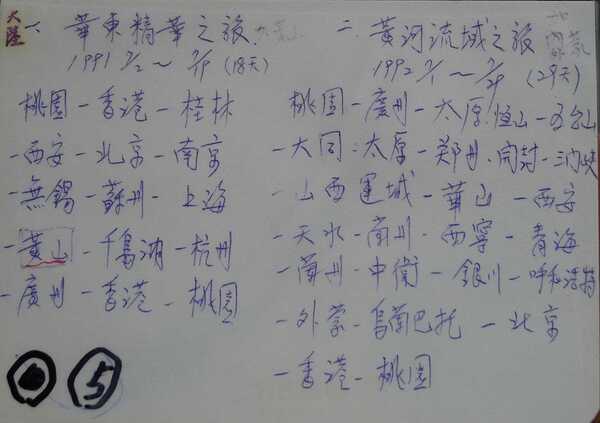 大陸
一、華東精華之旅
1991 7/2～7/19 (18天)
桃園－香港－桂林
－西安－北京－南京
－無錫－蘇州－上海
－黃山－千島湖－杭州
－廣州－香港－桃園
5
二、黃河流域之旅
1992 7/1～7/29 (29天)
桃園－廣州－太原.恒山－五台山
－大同.太原－鄭州.開封－三門峽
－山西運城－華山－西安
－天水－蘭州－西寧－青海
－蘭州－中衛－銀川－呼和浩特
－外蒙－烏蘭巴托－北京
－香港－桃園